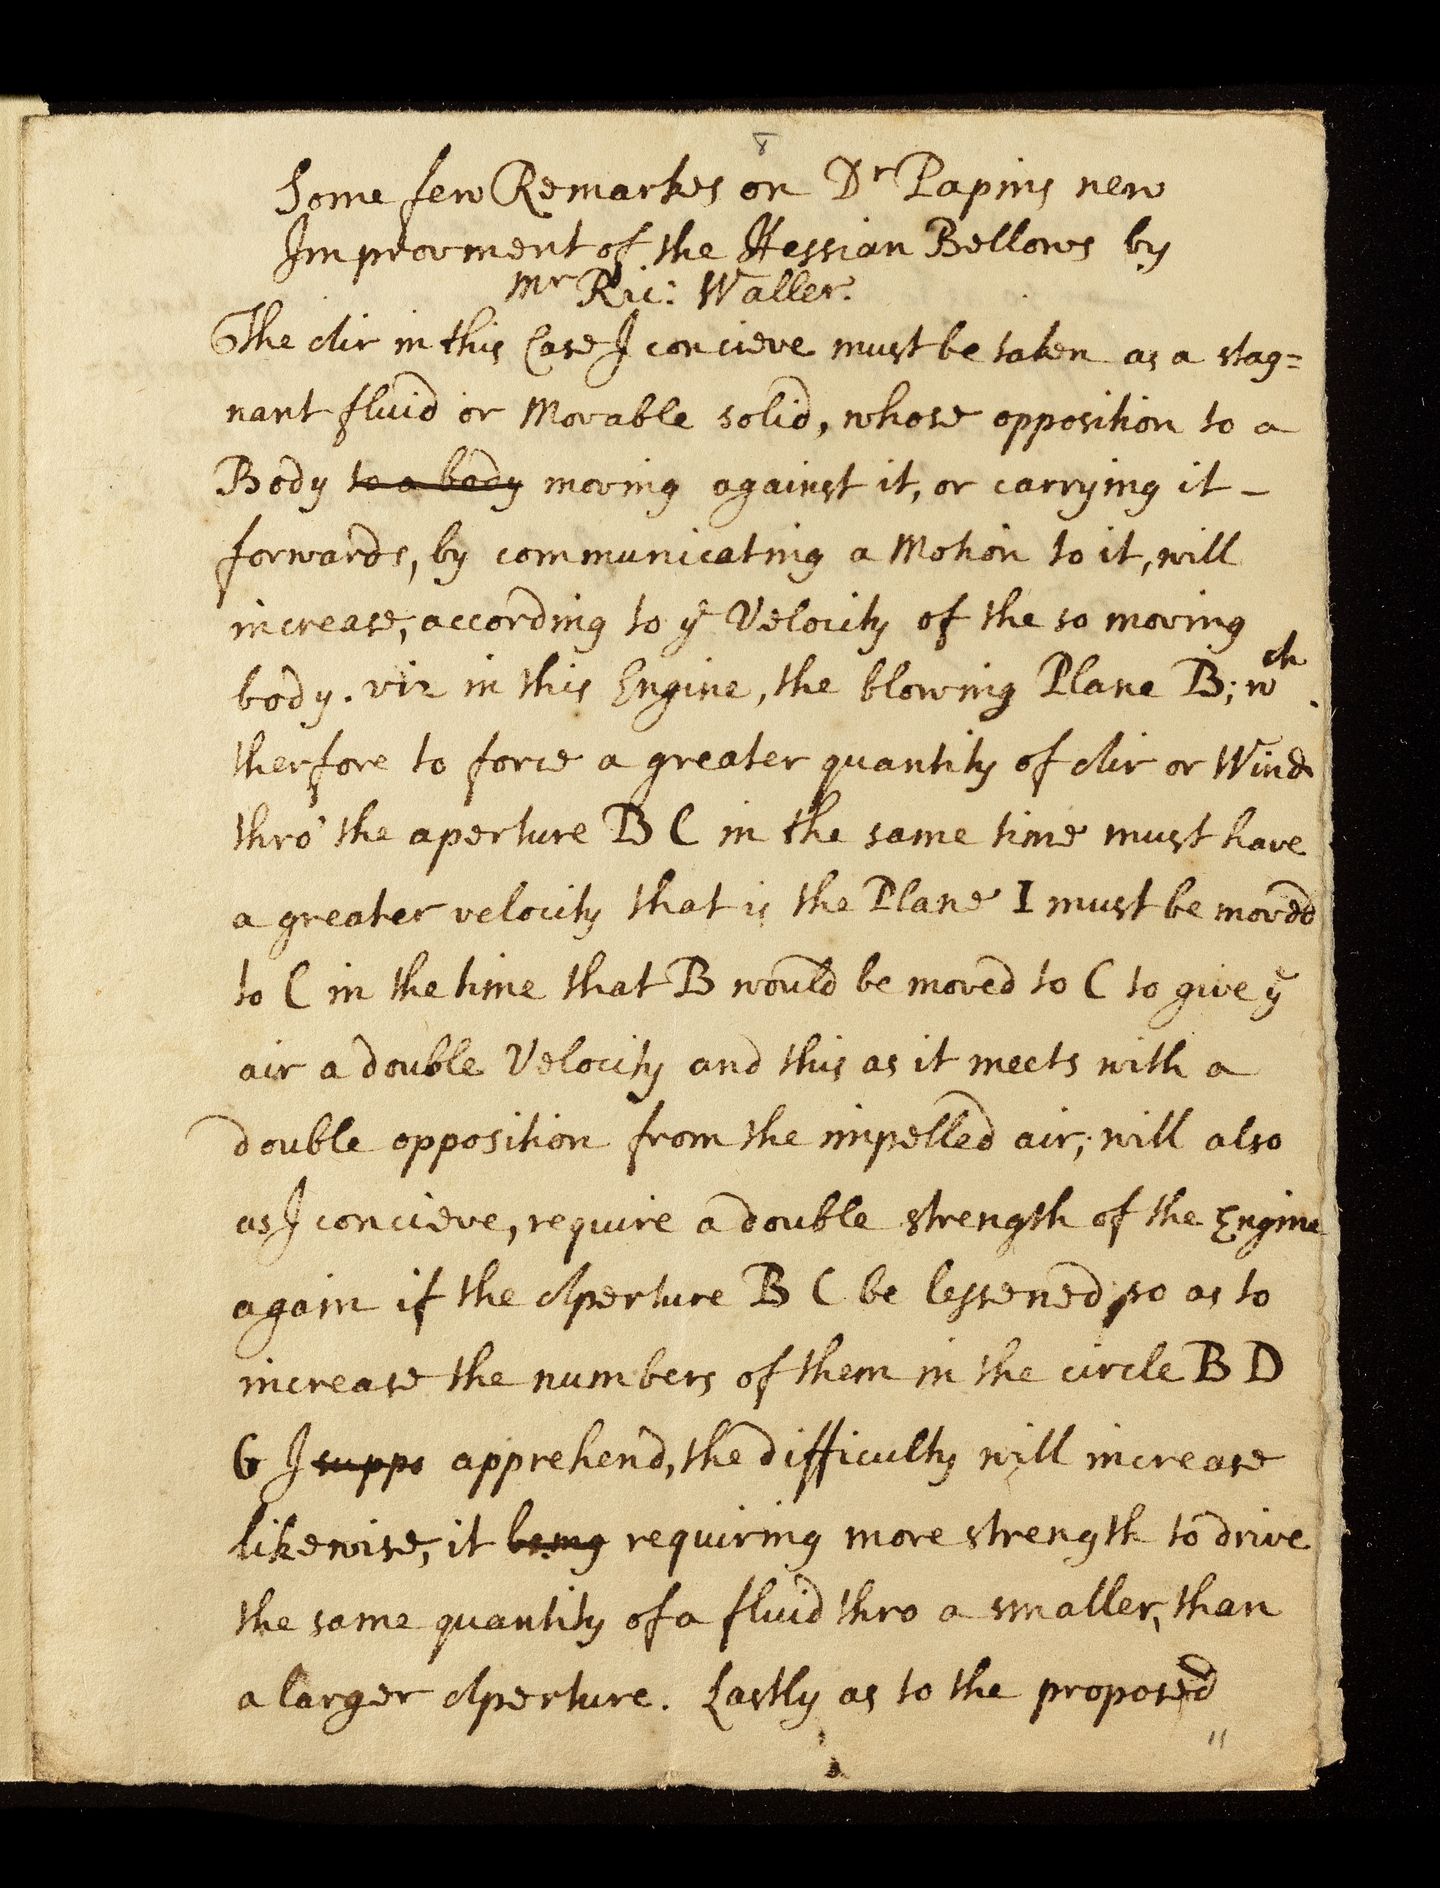 8
Some few Remarkes on Dr Papins new
Improvment of the Hessian Bellows by
Mr Ric: Waller.
The Air in this Case I concieve must be taken as a stag=
nant fluid or Movable solid, whose opposition to a
Body to a body moving against it, or carrying it -
forwards, by communicating a Motion to it, will
increase, according to ye Velocity of the so moving
body. viz in this Engine, the blowing Plane B; wch
therfore to force a greater quantity of Air or Wind
thro' the aperture B C in the same time must have
a greater velocity that is the Plane I must be moved
to C in the time that B would be moved to C to give ye
air a double Velocity and this as it meets with a
double opposition from the impelled air; will also
as I concieve, require a double strength of the Engine
again if the Aperture B C be lessened, so as to
increase the numbers of them in the circle B D
G I suppo apprehend, the difficulty will increase
likewise, it being requiring more strength to drive
the same quantity of a fluid thro a smaller, than
a larger Aperture. Lastly as to the proposed
"